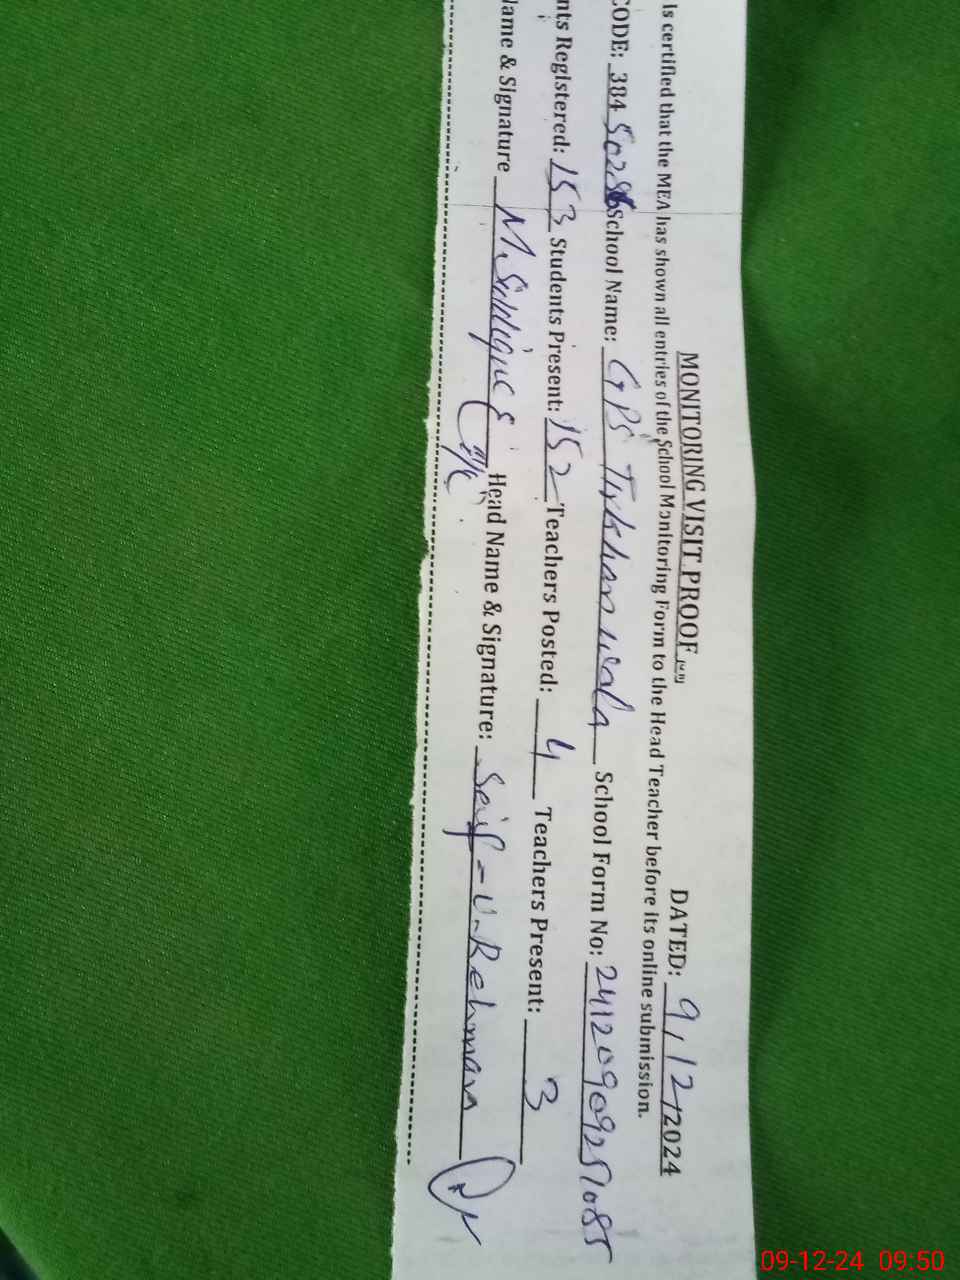 MONITORING VISIT PROOF DATED: 9/12/2024
Is certified that the MEA has shown all entries of the School Monitoring Form to the Head Teacher before its online submission.
CODE: 384 50286 School Name: GPS Tirkhanwala School Form No:
nts Registered: 153 Students Present: 152 Teachers Posted: 4 Teachers Present: 3
Name & Signature M. Siddique Head Name & Signature: Saif-U-Rehman
09-12-24 09:50